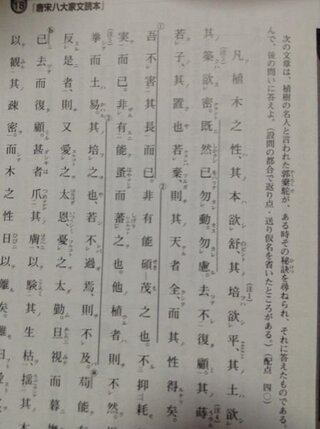 18 『唐宋八大家文読本』
次の文章は、植樹の名人と言われた郭橐駝が、ある時その秘訣を尋ねられ、それに答えたものである。
んで、後の問いに答えよ。(設問の都合で返り点・送り仮名を省いたところがある。)(配点 四〇)
凡植木之性、其本欲舒、其培欲平、其土欲
其築欲密。既然已、勿動勿慮、去不復顧。其蒔
若子、其置也若棄、則其天者全、而其性得矣。
吾不害其長而已、非有能碩茂之也。不抑耗
実而已、非有能蚤而蕃之也。他植者則不然。
拳而土易。其培之也、若不過焉、則不及。苟能
反是者、則又愛之太恩、憂之太勤。旦視而暮
已去而復顧。甚者爪其膚、以験其生枯、揺其
以観其疎密。而木之性日以離矣。雖曰